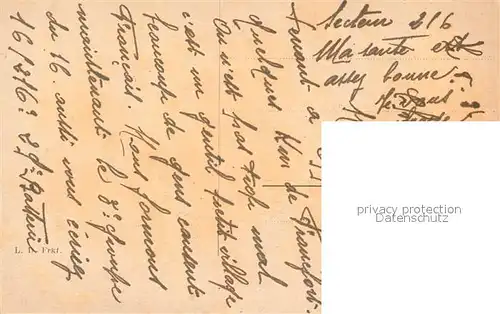 Secteur 216
Ma santé est
assez bonne
tenant à
Quelques Km de
On n'est pas trop mal
c'est un gentil petit village
beaucoup de gens causent
français. Nous formons
maintenant le 3e groupe
du 16. aussi vous écrirez
16/216e 2e Batterie
L. Frkf.
privacy protection
Datenschutz